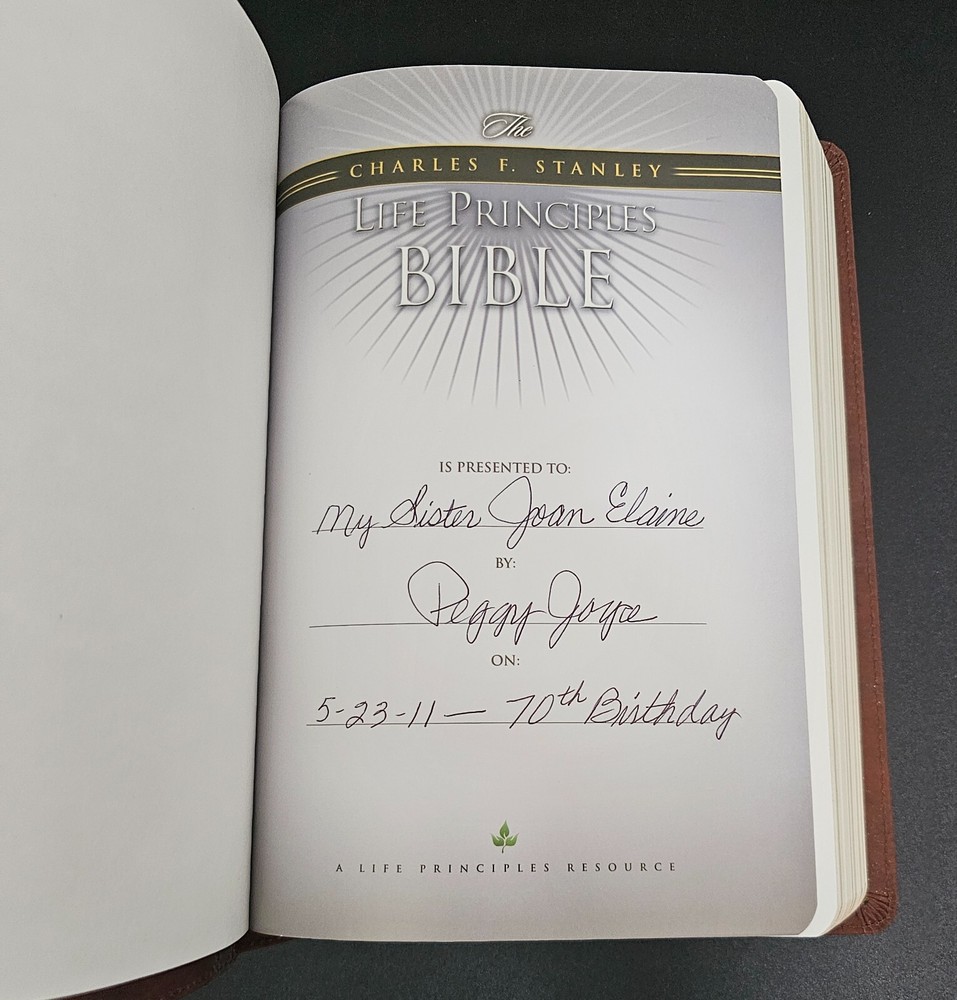 The
CHARLES F. STANLEY
LIFE PRINCIPLES
BIBLE
IS PRESENTED TO:
My Sister Joan Elaine
BY:
Peggy Joyce
ON:
5-23-11 — 70th Birthday
A LIFE PRINCIPLES RESOURCE